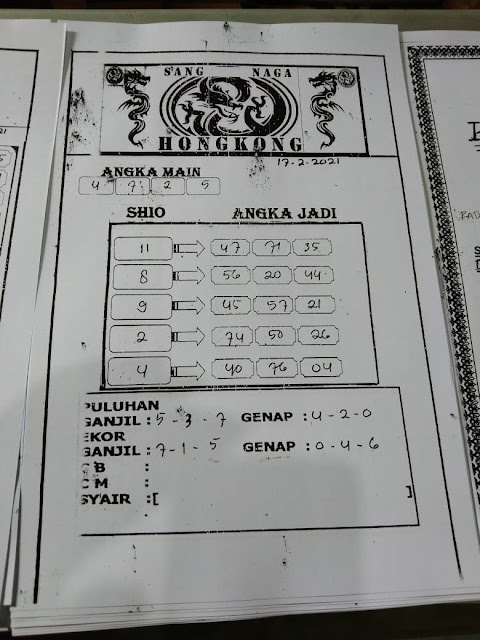 SANG NAGA
HONGKONG
17.2.2021
ANGKA MAIN
4 7 2 5
SHIO ANGKA JADI
11 47 71 35
8 56 20 44
9 45 57 21
2 74 50 26
4 40 76 04
PULUHAN
GANJIL : 5-3-7 GENAP : 4-2-0
EKOR
GANJIL : 7-1-5 GENAP : 0-4-6
C B :
C M :
SYAIR :[ ]